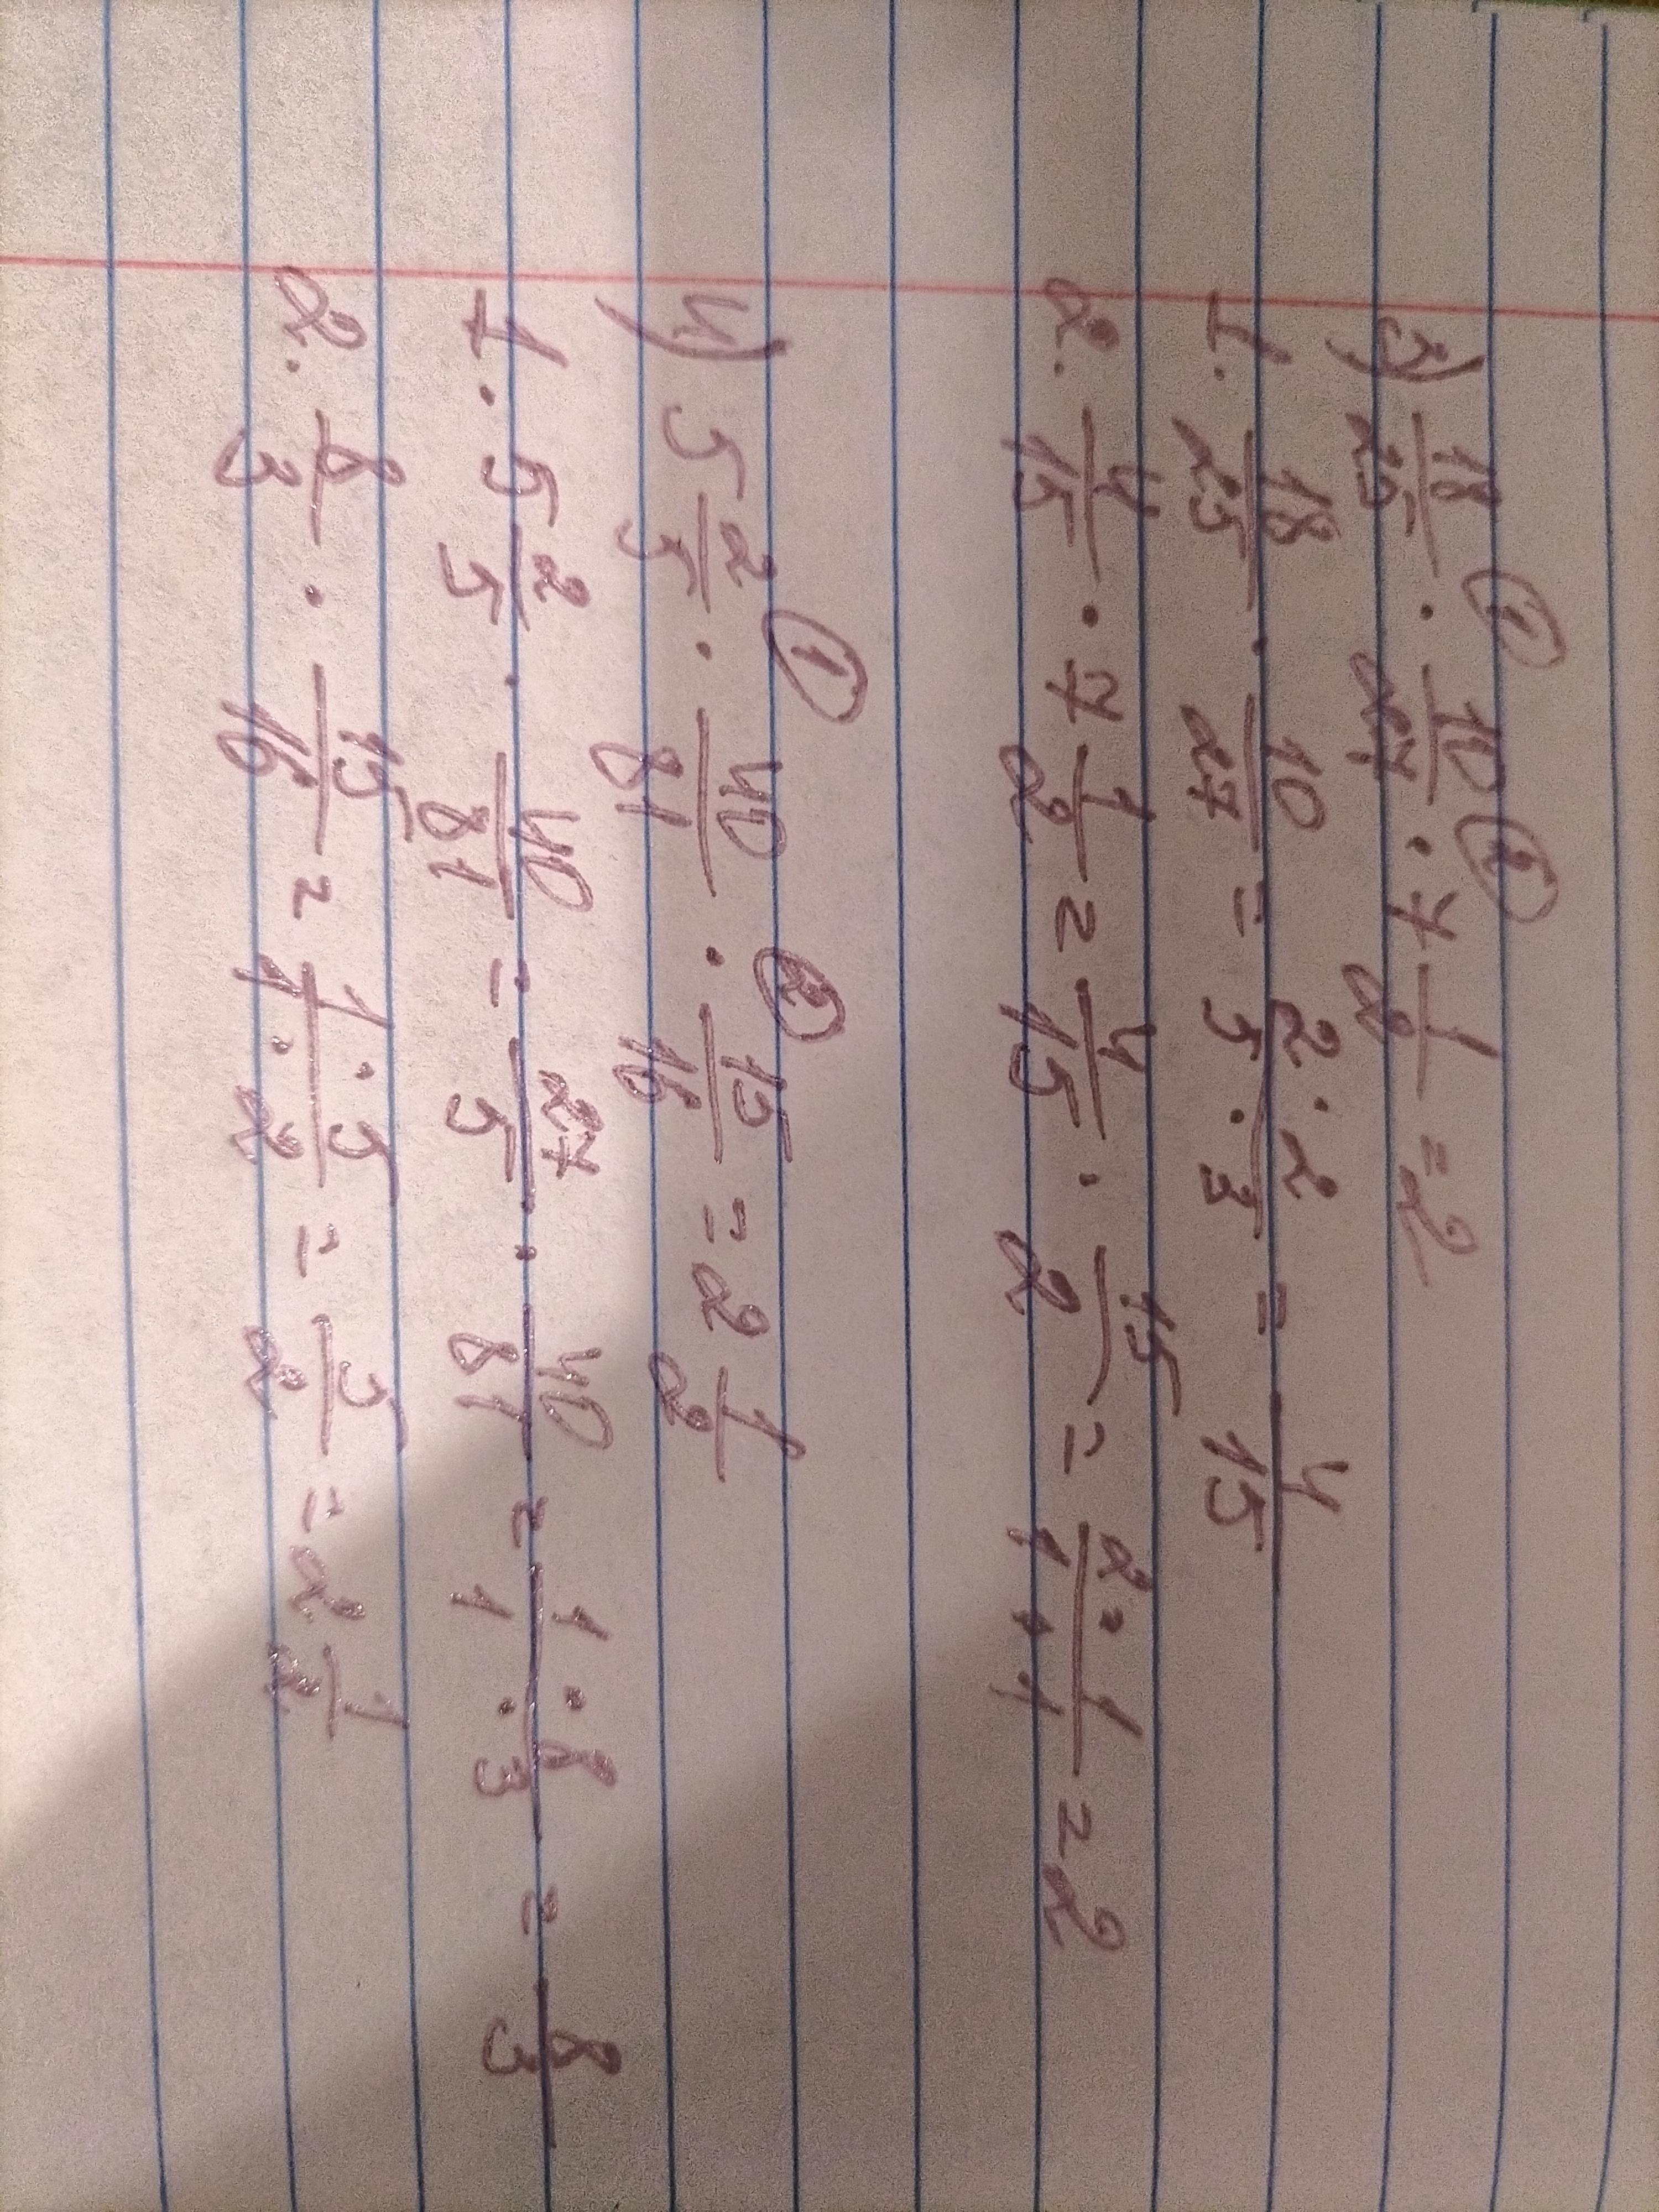 3) 18/25 · ① 10/27 · ② 7 1/2 = 2
1. 18/25 · 10/27 = 2·2/5·3 = 4/15
2. 4/15 · 7 1/2 = 4/15 · 15/2 = 2·1/1·1 = 2
4) 5 2/5 · ① 40/81 · ② 15/16 = 2 1/2
1. 5 2/5 · 40/81 = 27/5 · 40/81 = 1·8/1·3 = 8/3
2. 8/3 · 15/16 = 1·5/1·2 = 5/2 = 2 1/2